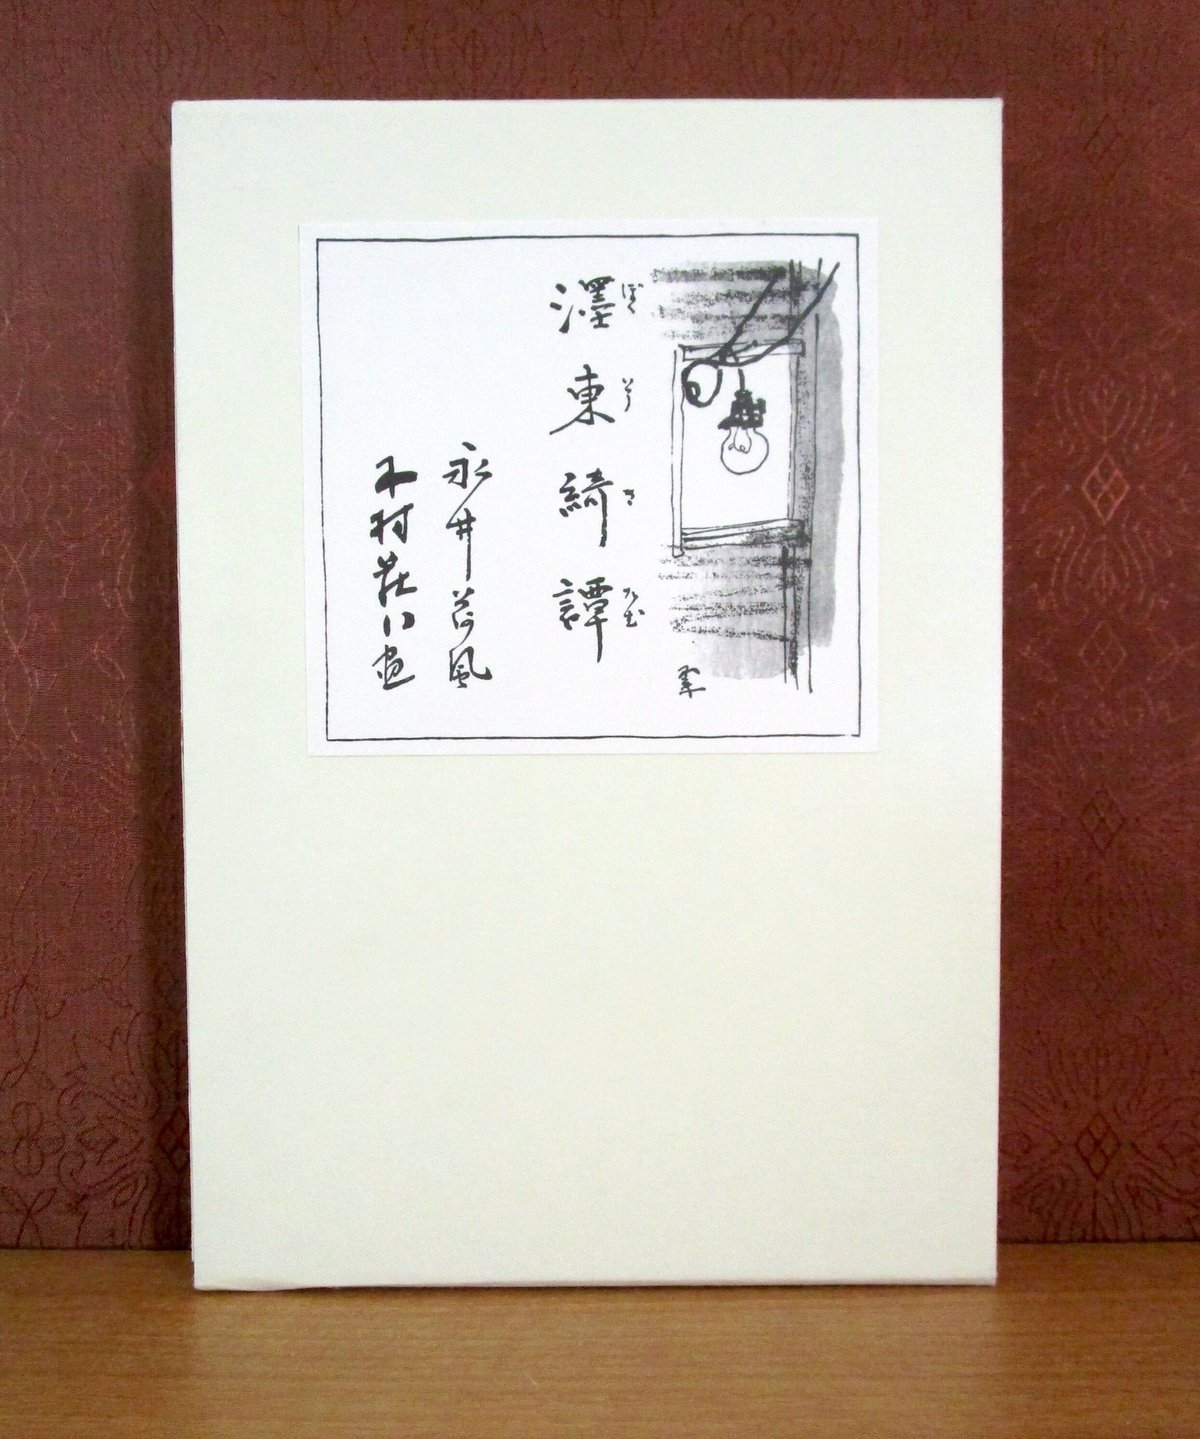 濹東綺譚
ぼくとうきたむ
永井荷風
木村荘八画